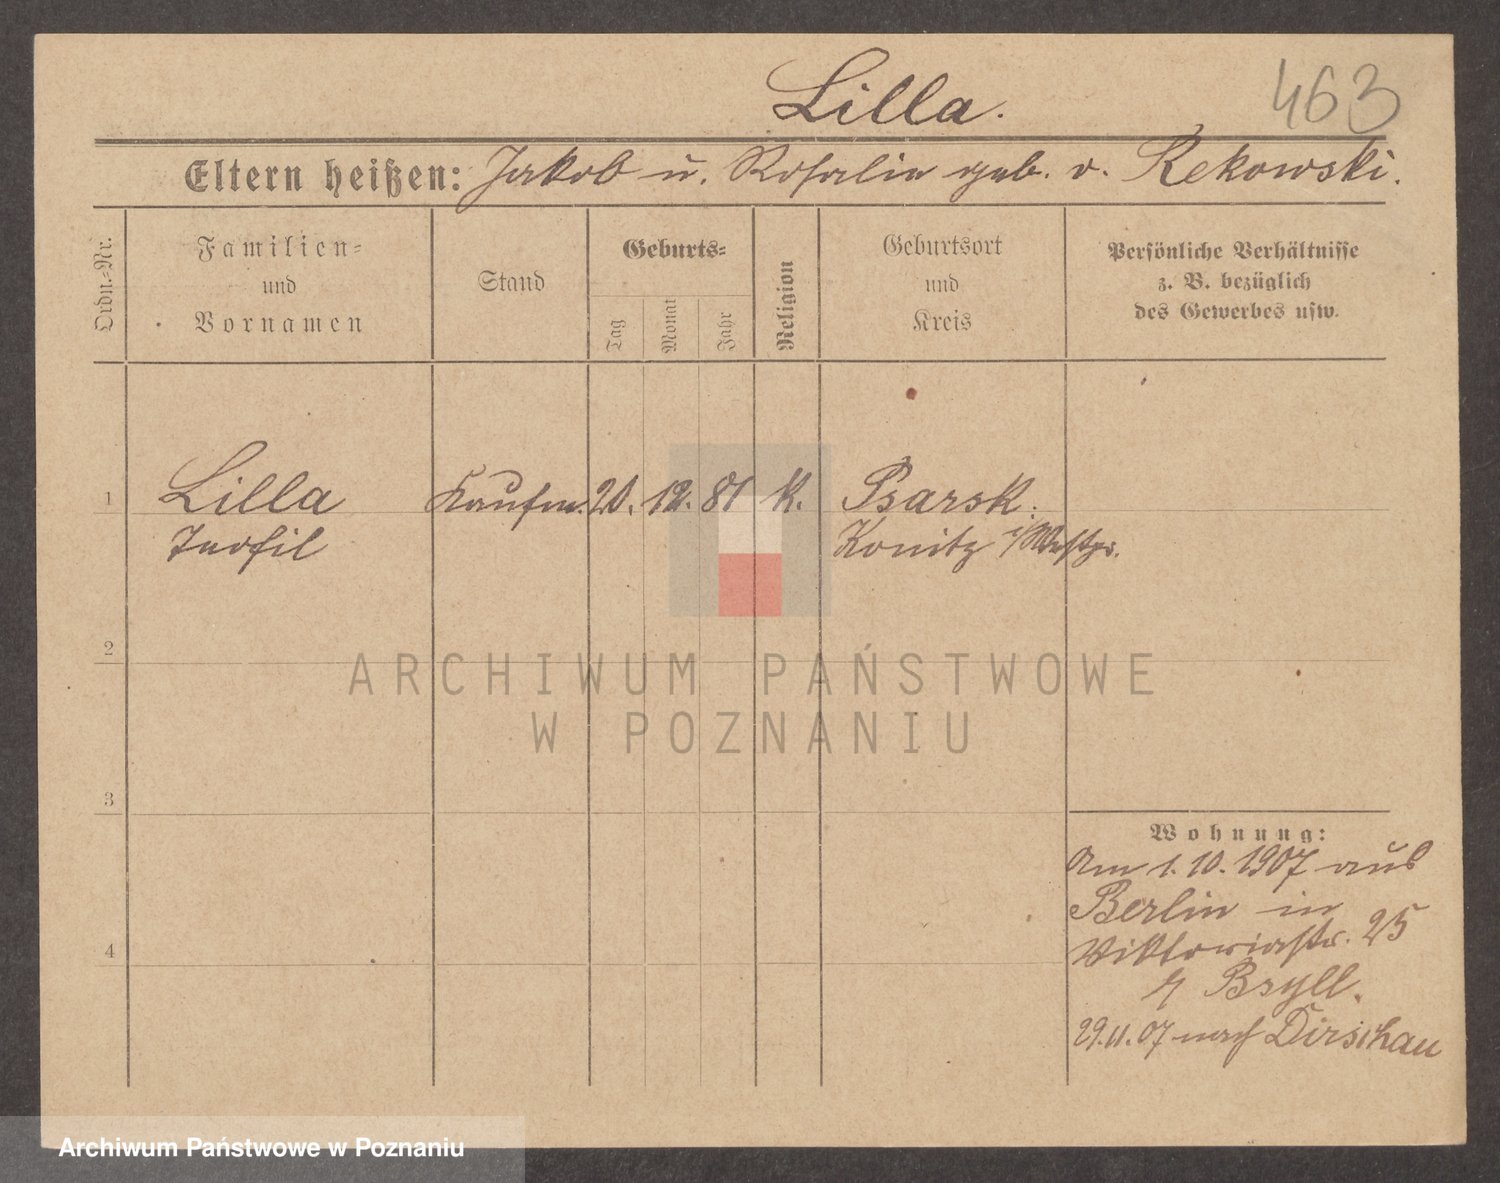 Lilla.
463
Eltern heißen: Jakob u. Rosalie geb. v. Rekowski.
Ordn.-Nr.
Familien-
und
Vornamen
Stand
Geburts-
Tag
Monat
Jahr
Religion
Geburtsort
und
Kreis
Persönliche Verhältnisse
z. B. bezüglich
des Gewerbes usw.
1 Lilla Kaufm. 20. 12. 81 K. Psarsk.
Teofil Konitz i/Westpr.
2
3
4
Wohnung:
Am 1. 10. 1907 aus
Berlin in
Viktoriastr. 25
Bryll.
29.11.07 nach Dirschau
ARCHIWUM PAŃSTWOWE
W POZNANIU
Archiwum Państwowe w Poznaniu